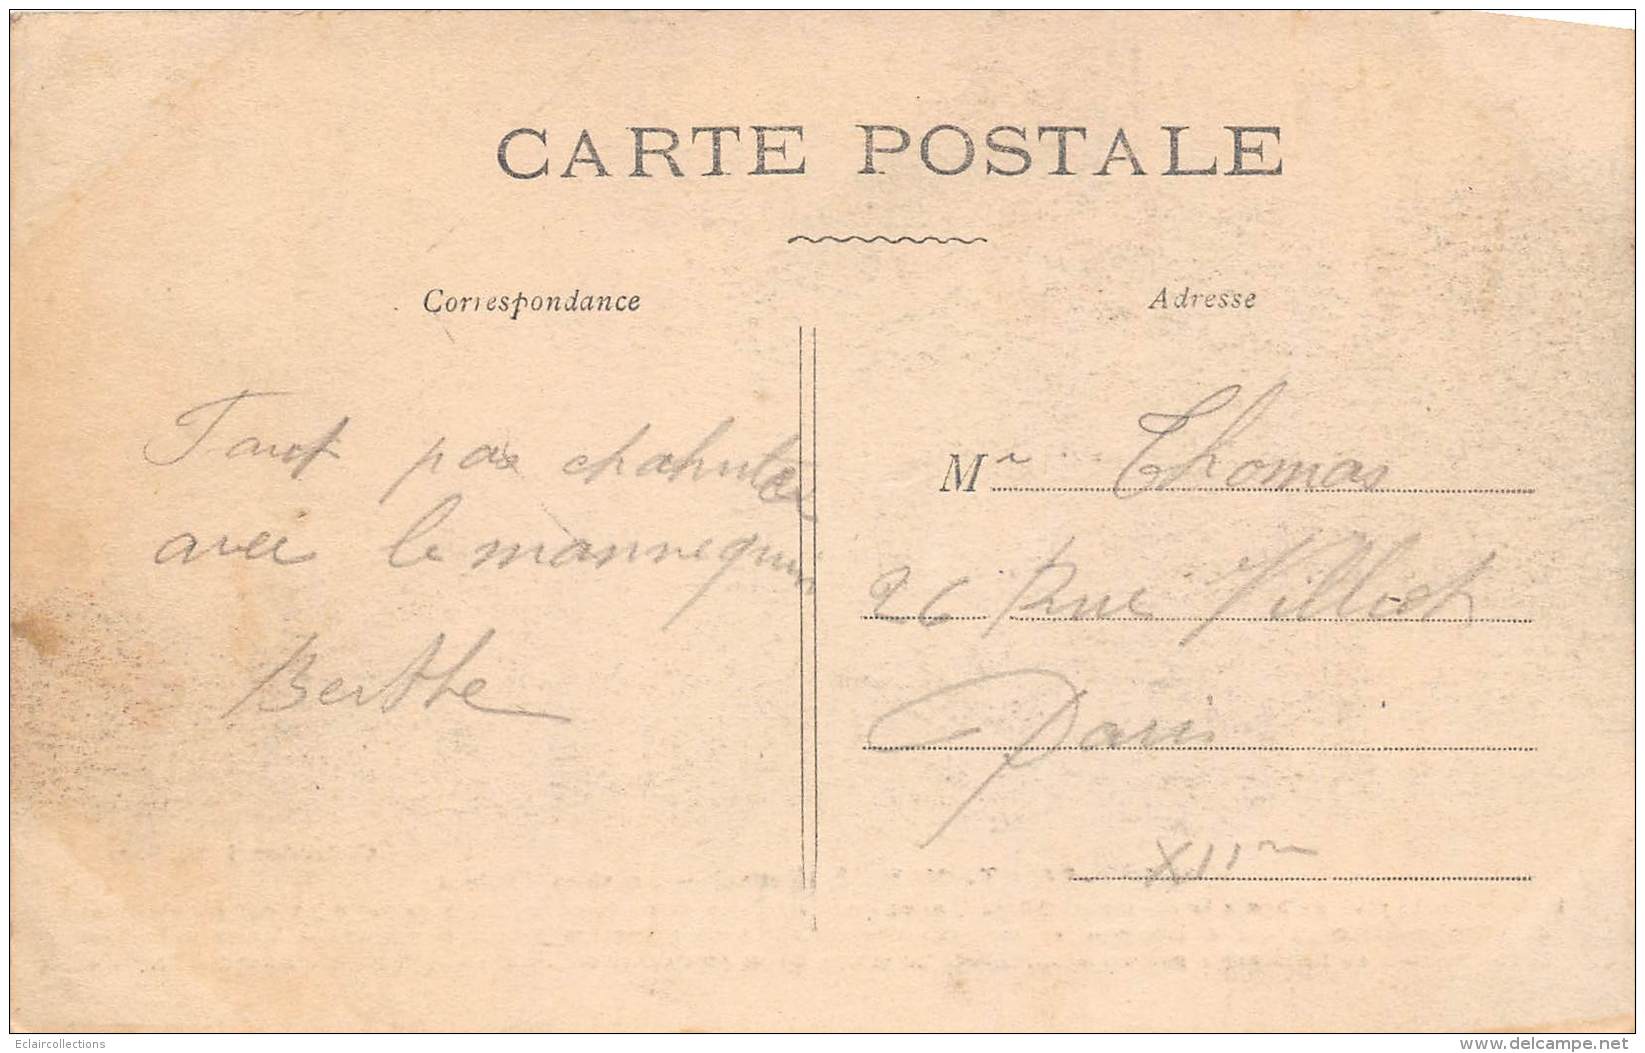 CARTE POSTALE
Correspondance
Adresse
Faut pas chahuter
avec le mannequin
Berthe
Mr Thomas
26 Rue Villiot
Paris
XIIme
Eclaircollections
www.delcampe.net